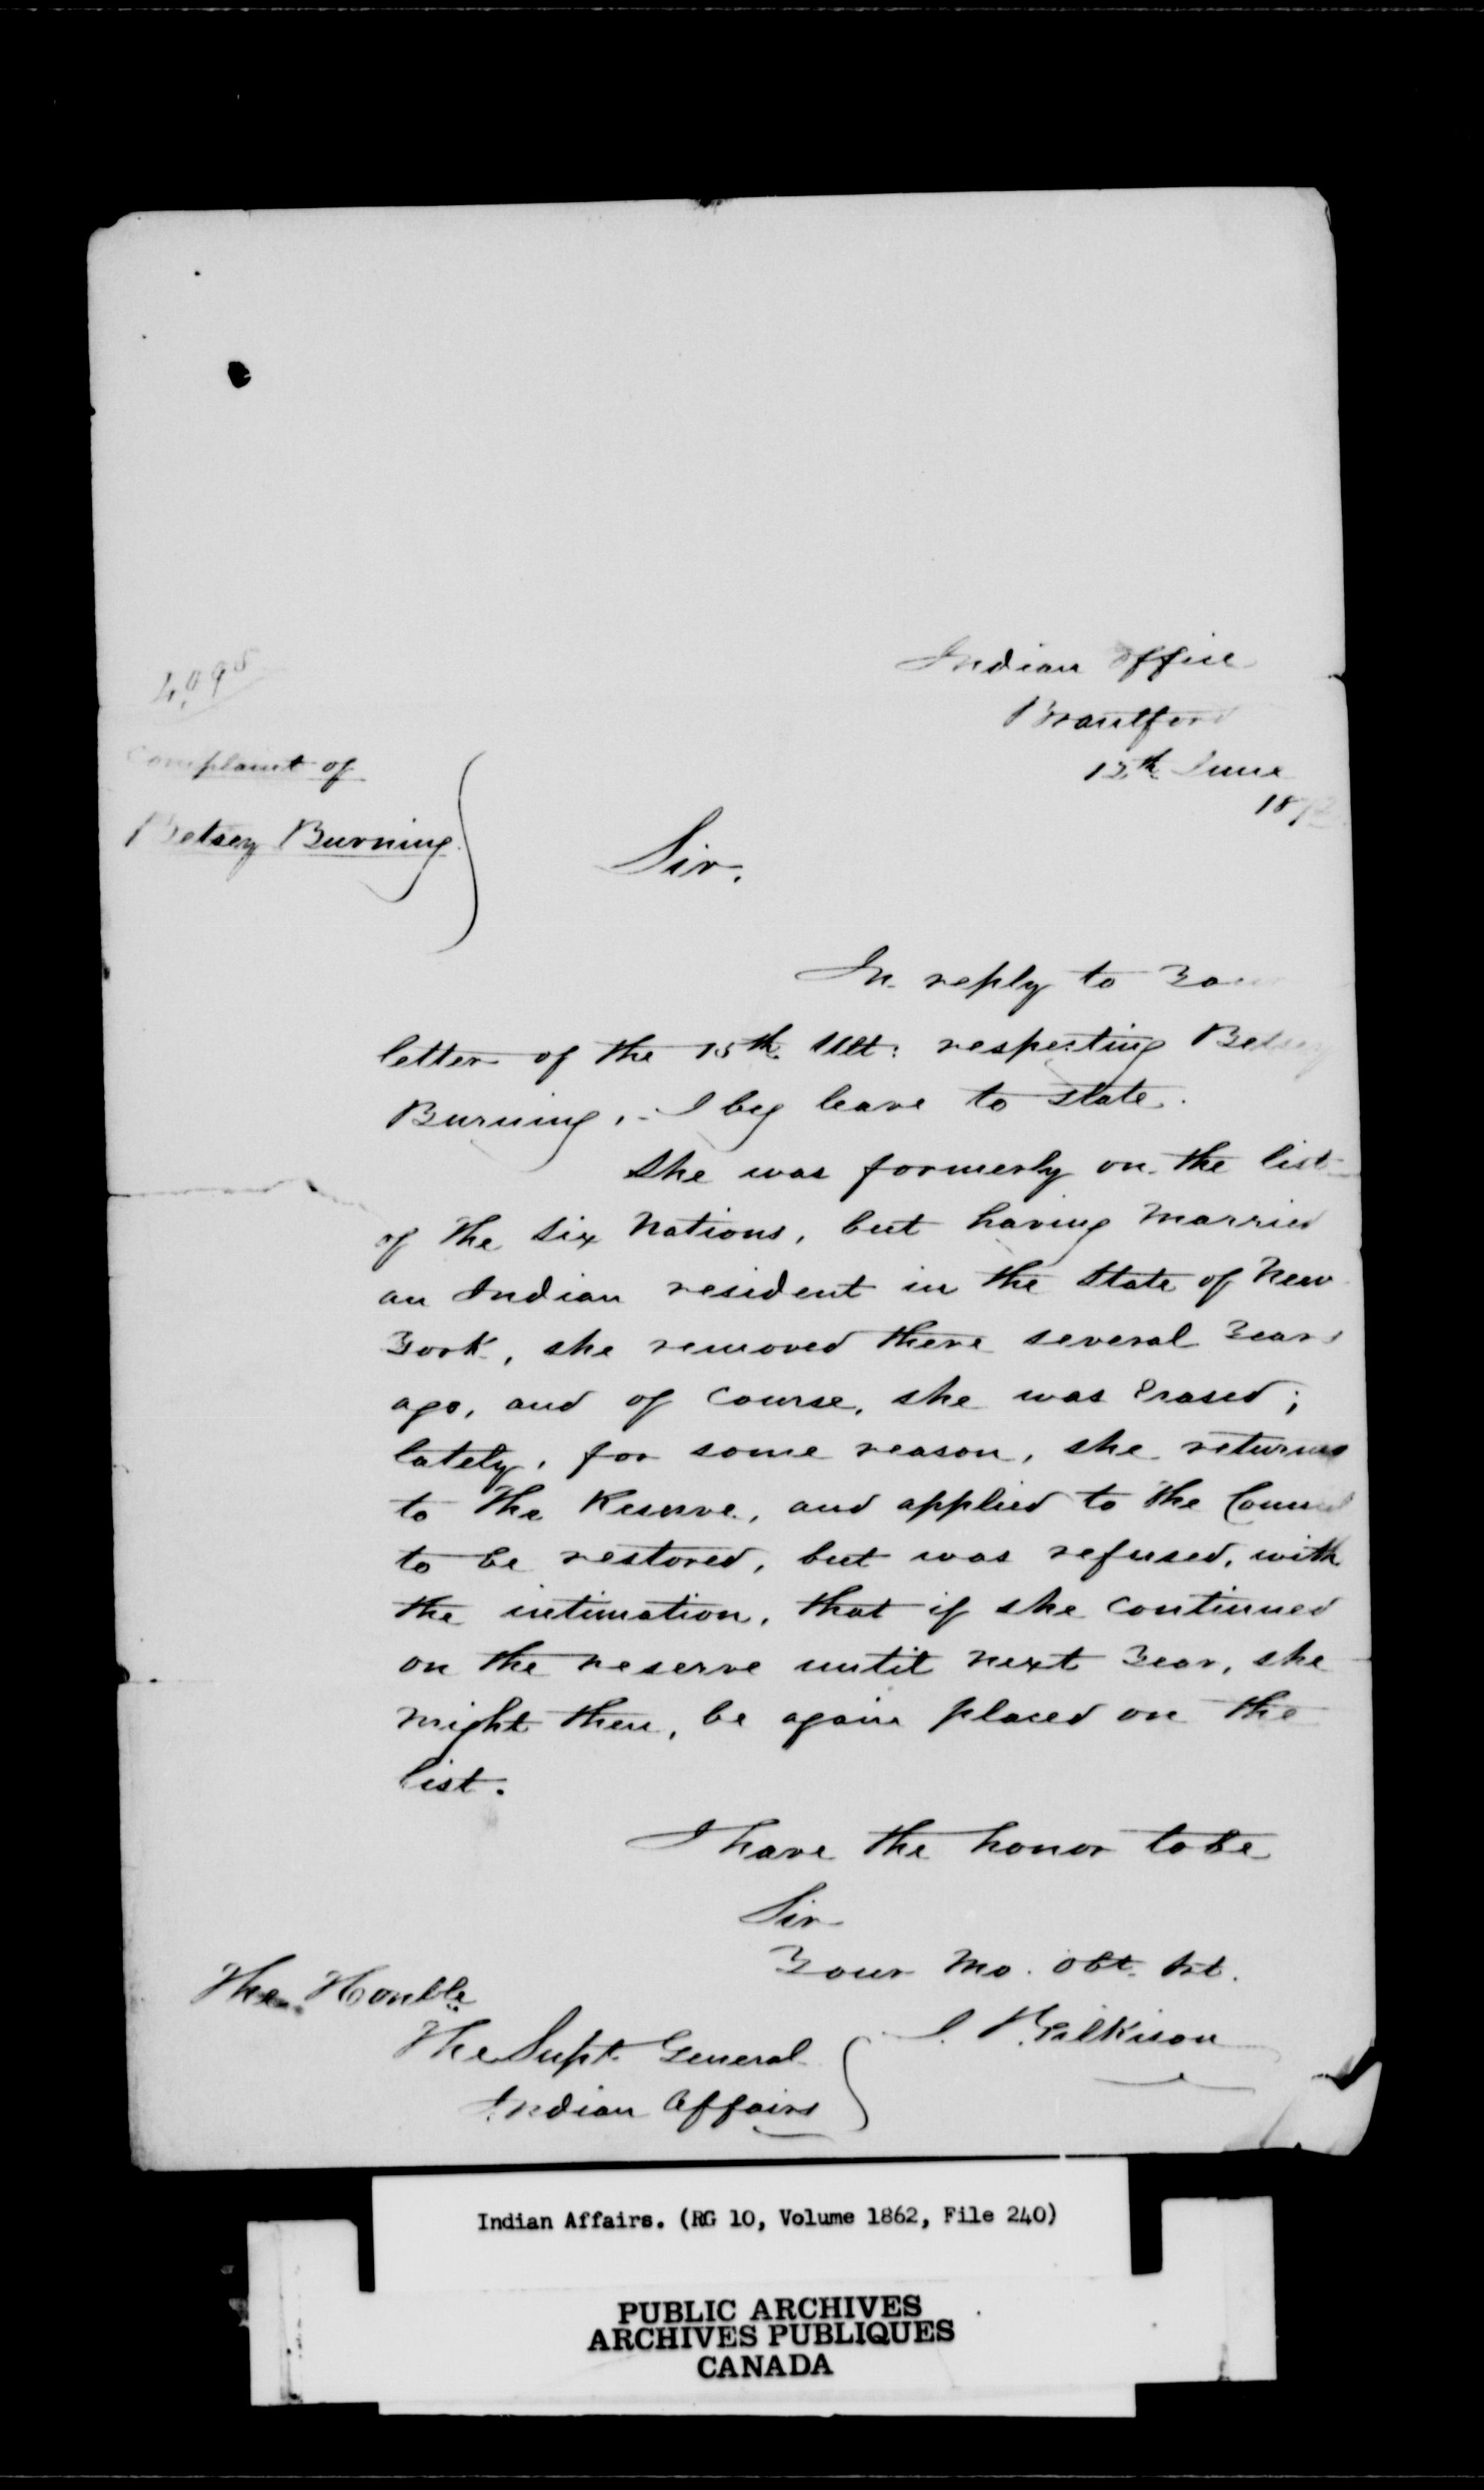 Indian Office
Brantford
12th June
187
4098
Complaint of
Betsey Burning
Sir,
In reply to Your
letter of the 15th Ult: respecting Betsey
Burning, - I beg leave to state.
She was formerly on the list
of the Six Nations, but having married
an Indian resident in the State of New
York, she removed there several Years
ago, and of course, she was erased;
lately, for some reason, she returned
to the Reserve, and applied to the Council
to be restored, but was refused, with
the intimation, that if she continued
on the reserve until next Year, she
might then, be again placed on the
list.
I have the honor to be
Sir
Your Mo. Obt. Svt.
J. Gilkison
The Honble
The Supt. General
Indian Affairs
Indian Affairs. (RG 10, Volume 1862, File 240)
PUBLIC ARCHIVES
ARCHIVES PUBLIQUES
CANADA